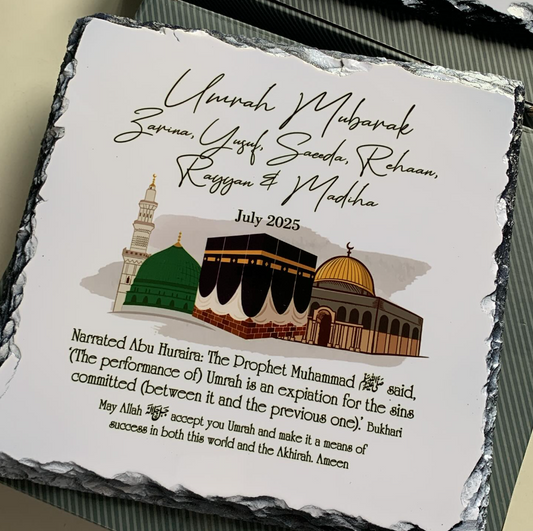 Umrah Mubarak
Zarina, Yusuf, Saeeda, Rehaan,
Rayyan & Madiha
July 2025
Narrated Abu Huraira: The Prophet Muhammad ﷺ said,
'(The performance of) Umrah is an expiation for the sins
committed (between it and the previous one).' Bukhari
May Allah accept you Umrah and make it a means of
success in both this world and the Akhirah. Ameen